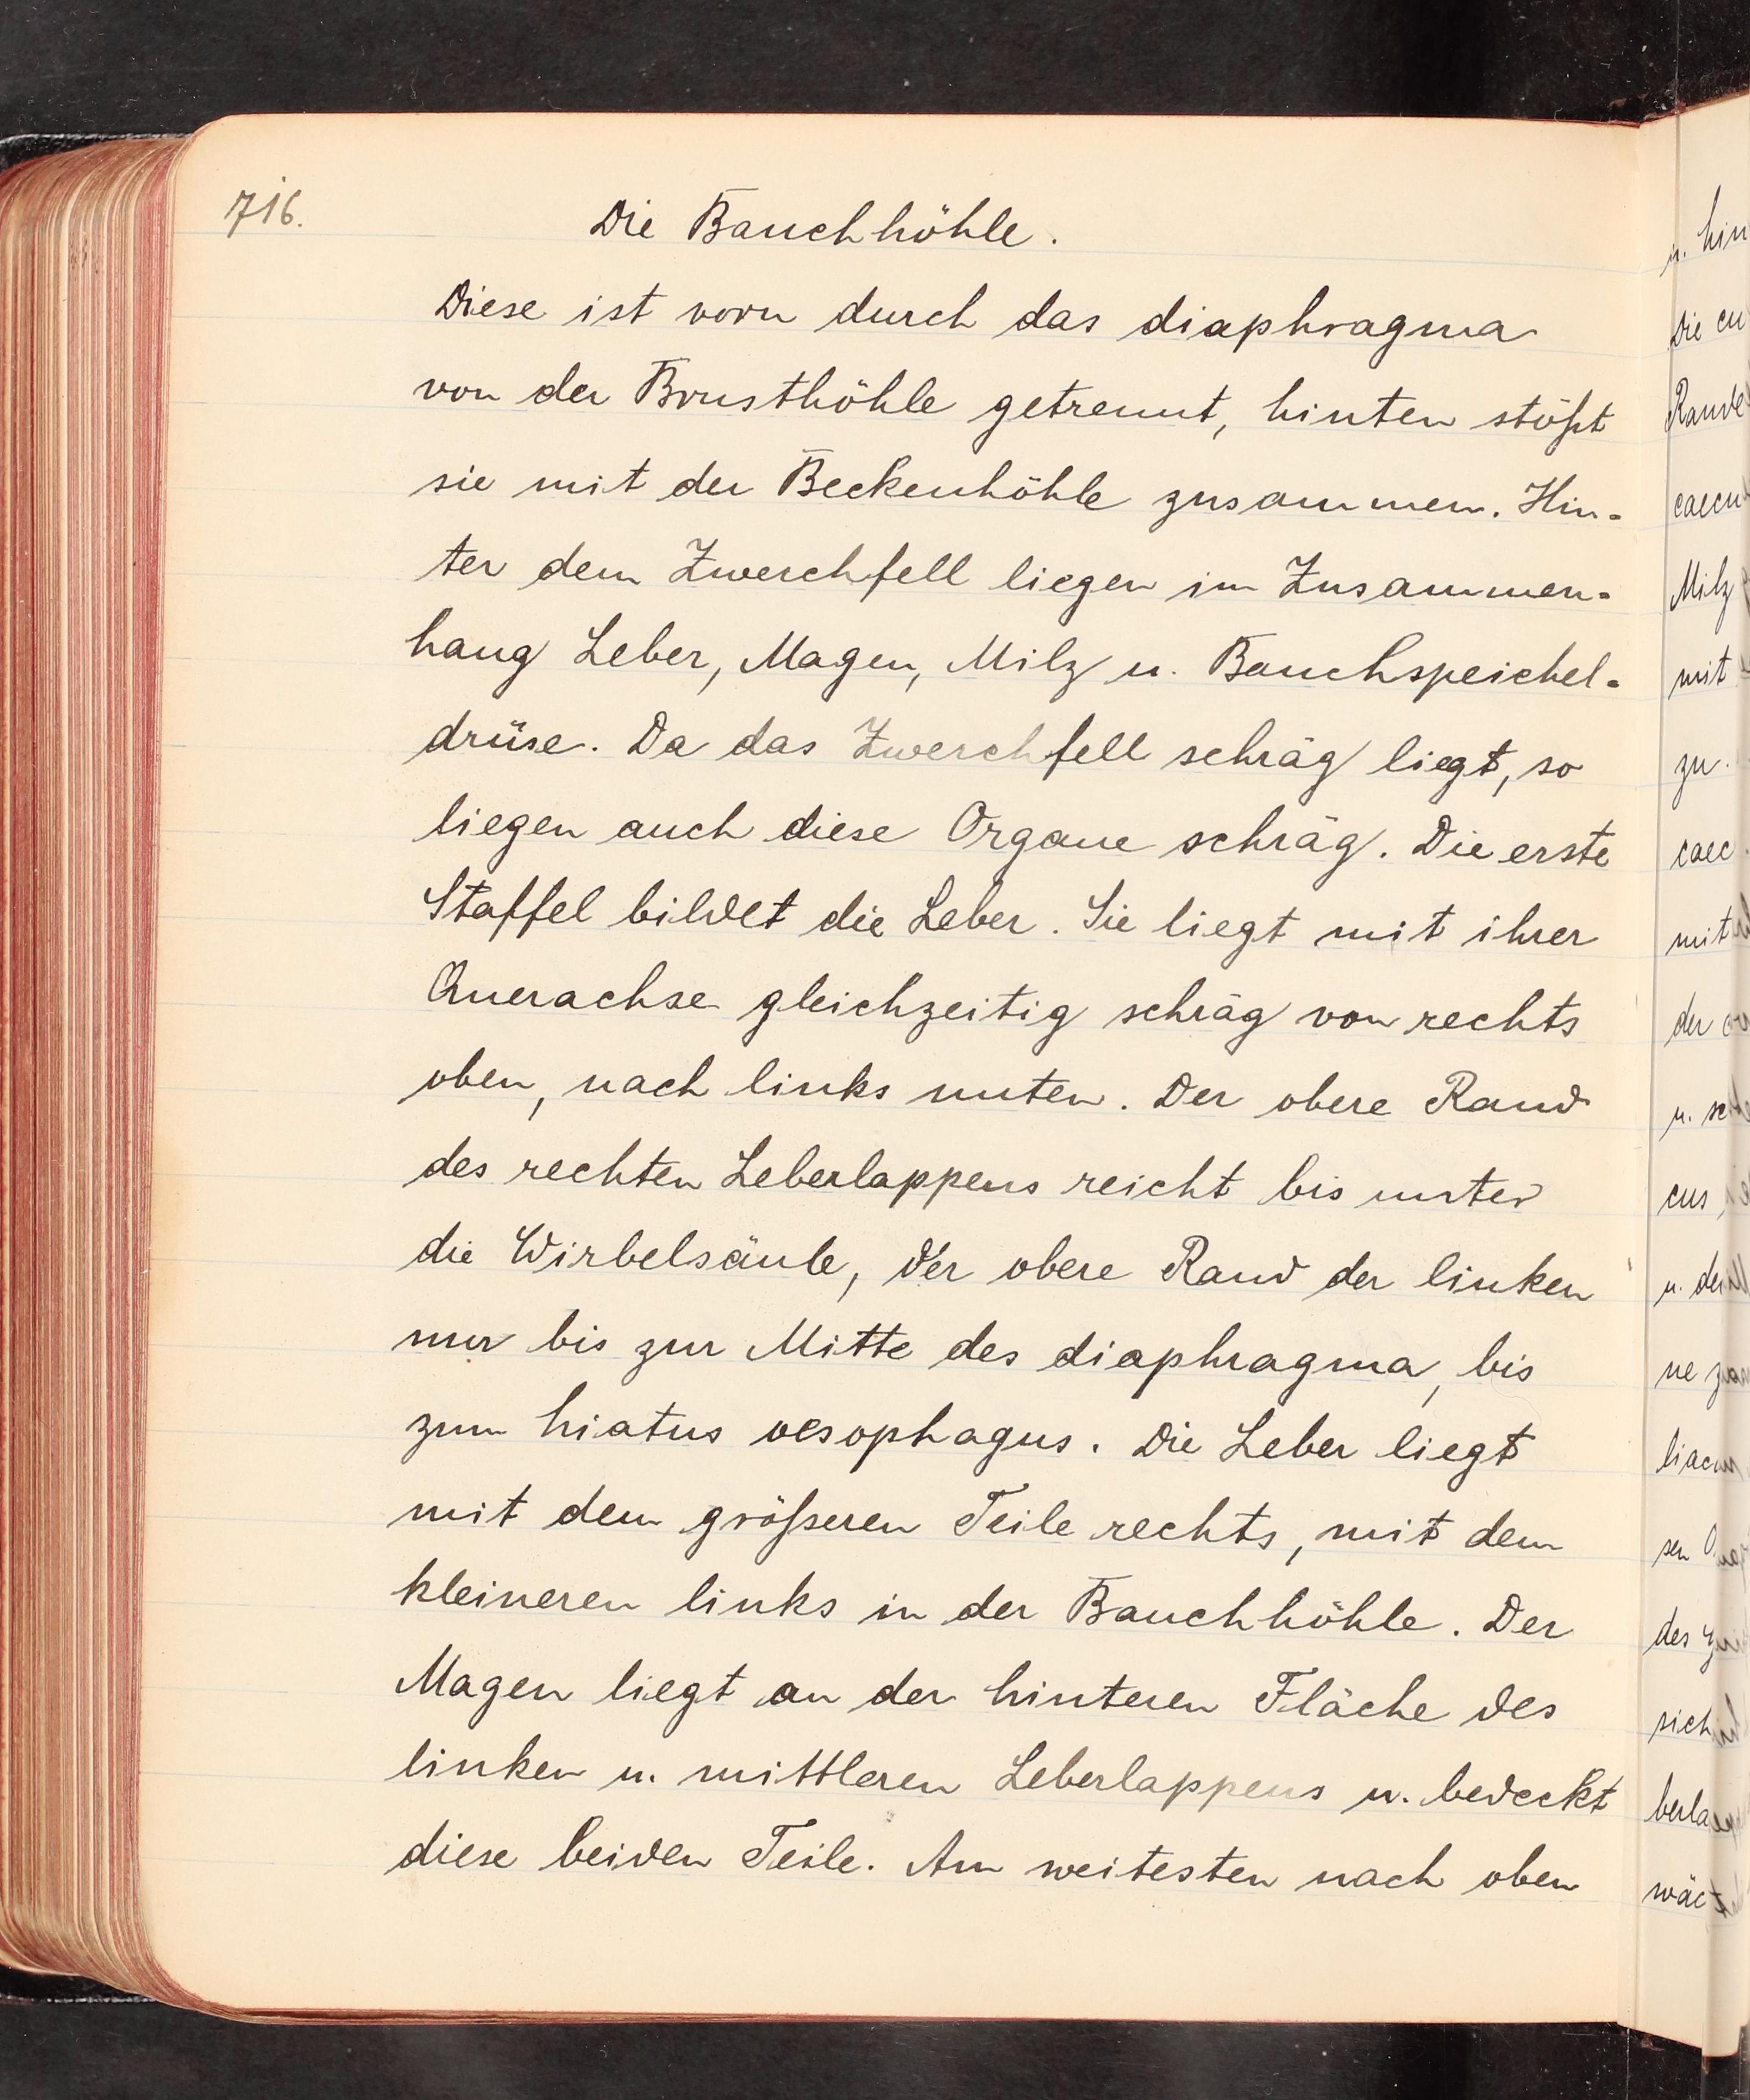 716.
Die Bauchhöhle.
Diese ist vorn durch das diaphragma
von der Brusthöhle getrennt, hinten stößt
sie mit der Beckenhöhle zusammen. Hin-
ter dem Zwerchfell liegen im Zusammen-
hang Leber, Magen, Milz u. Bauchspeichel-
drüse. Da das Zwerchfell schräg liegt, so
liegen auch diese Organe schräg. Die erste
Staffel bildet die Leber. Sie liegt mit ihrer
Querachse gleichzeitig schräg von rechts
oben, nach links unten. Der obere Rand
des rechten Leberlappens reicht bis unter
die Wirbelsäule, der obere Rand der linken
nur bis zur Mitte des diaphragma, bis
zum hiatus oesophagus. Die Leber liegt
mit dem größeren Teile rechts, mit dem
kleineren links in der Bauchhöhle. Der
Magen liegt an der hinteren Fläche des
linken u. mittleren Leberlappens u. bedeckt
diese beiden Teile. Am weitesten nach oben
u. hin
Die cu
Rande
caecu
Milz
mit
zu.
caec
mit
der
u. sc
cus,
u. der
ne
liacu
sen
des
sich
berla
wäc